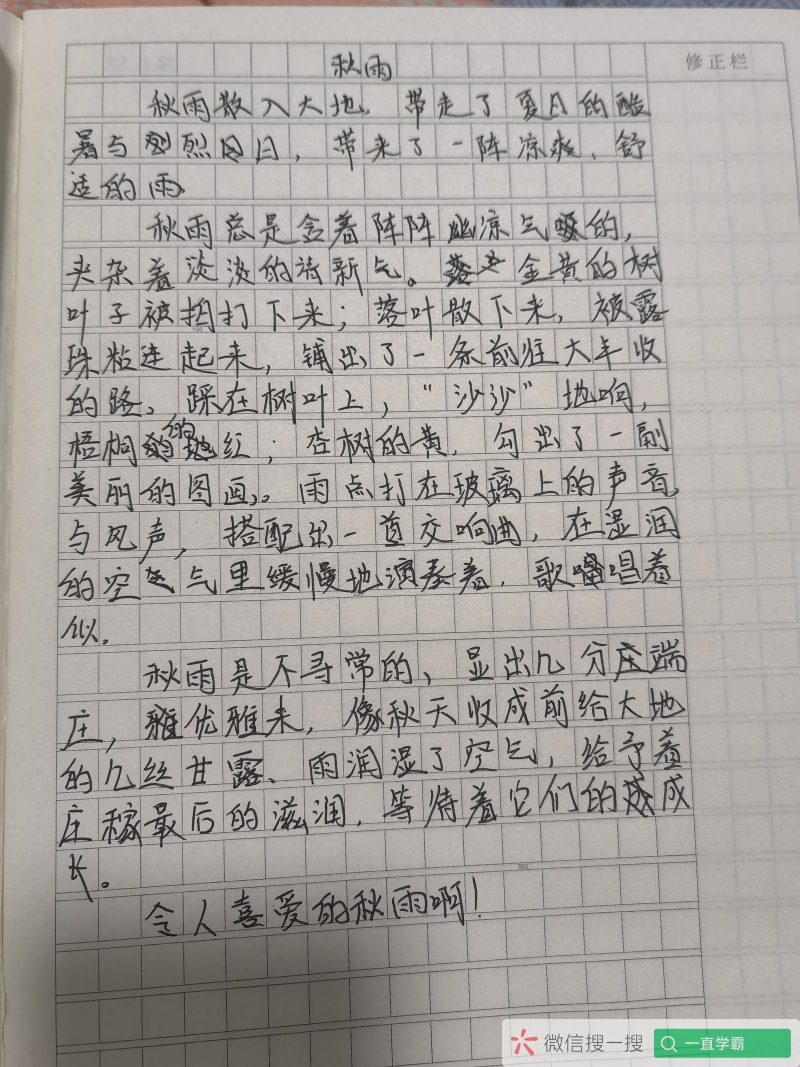 秋雨
修正栏
秋雨散入大地，带走了夏日的酷
暑与烈日，带来了一阵凉爽、舒
适的雨。
秋雨总是含着阵阵幽凉气的，
夹杂着淡淡的清新气。金黄的树
叶子被捆打下来；落叶散下来，被露
珠粘连起来，铺出了一条前往大丰收
的路。踩在树叶上，“沙沙”地响，
梧桐的红；杏树的黄，勾出了一副
美丽的图画。雨点打在玻璃上的声音，
与风声，搭配出一首交响曲，在湿润
的空气里缓慢地演奏着，歌唱着
似。
秋雨是不寻常的，显出几分端
庄，优雅来，像秋天收成前给大地
的几丝甘露、雨润湿了空气，给予着
庄稼最后的滋润，等待着它们的成
长。
300
令人喜爱的秋雨啊！
微信搜一搜
一直学霸